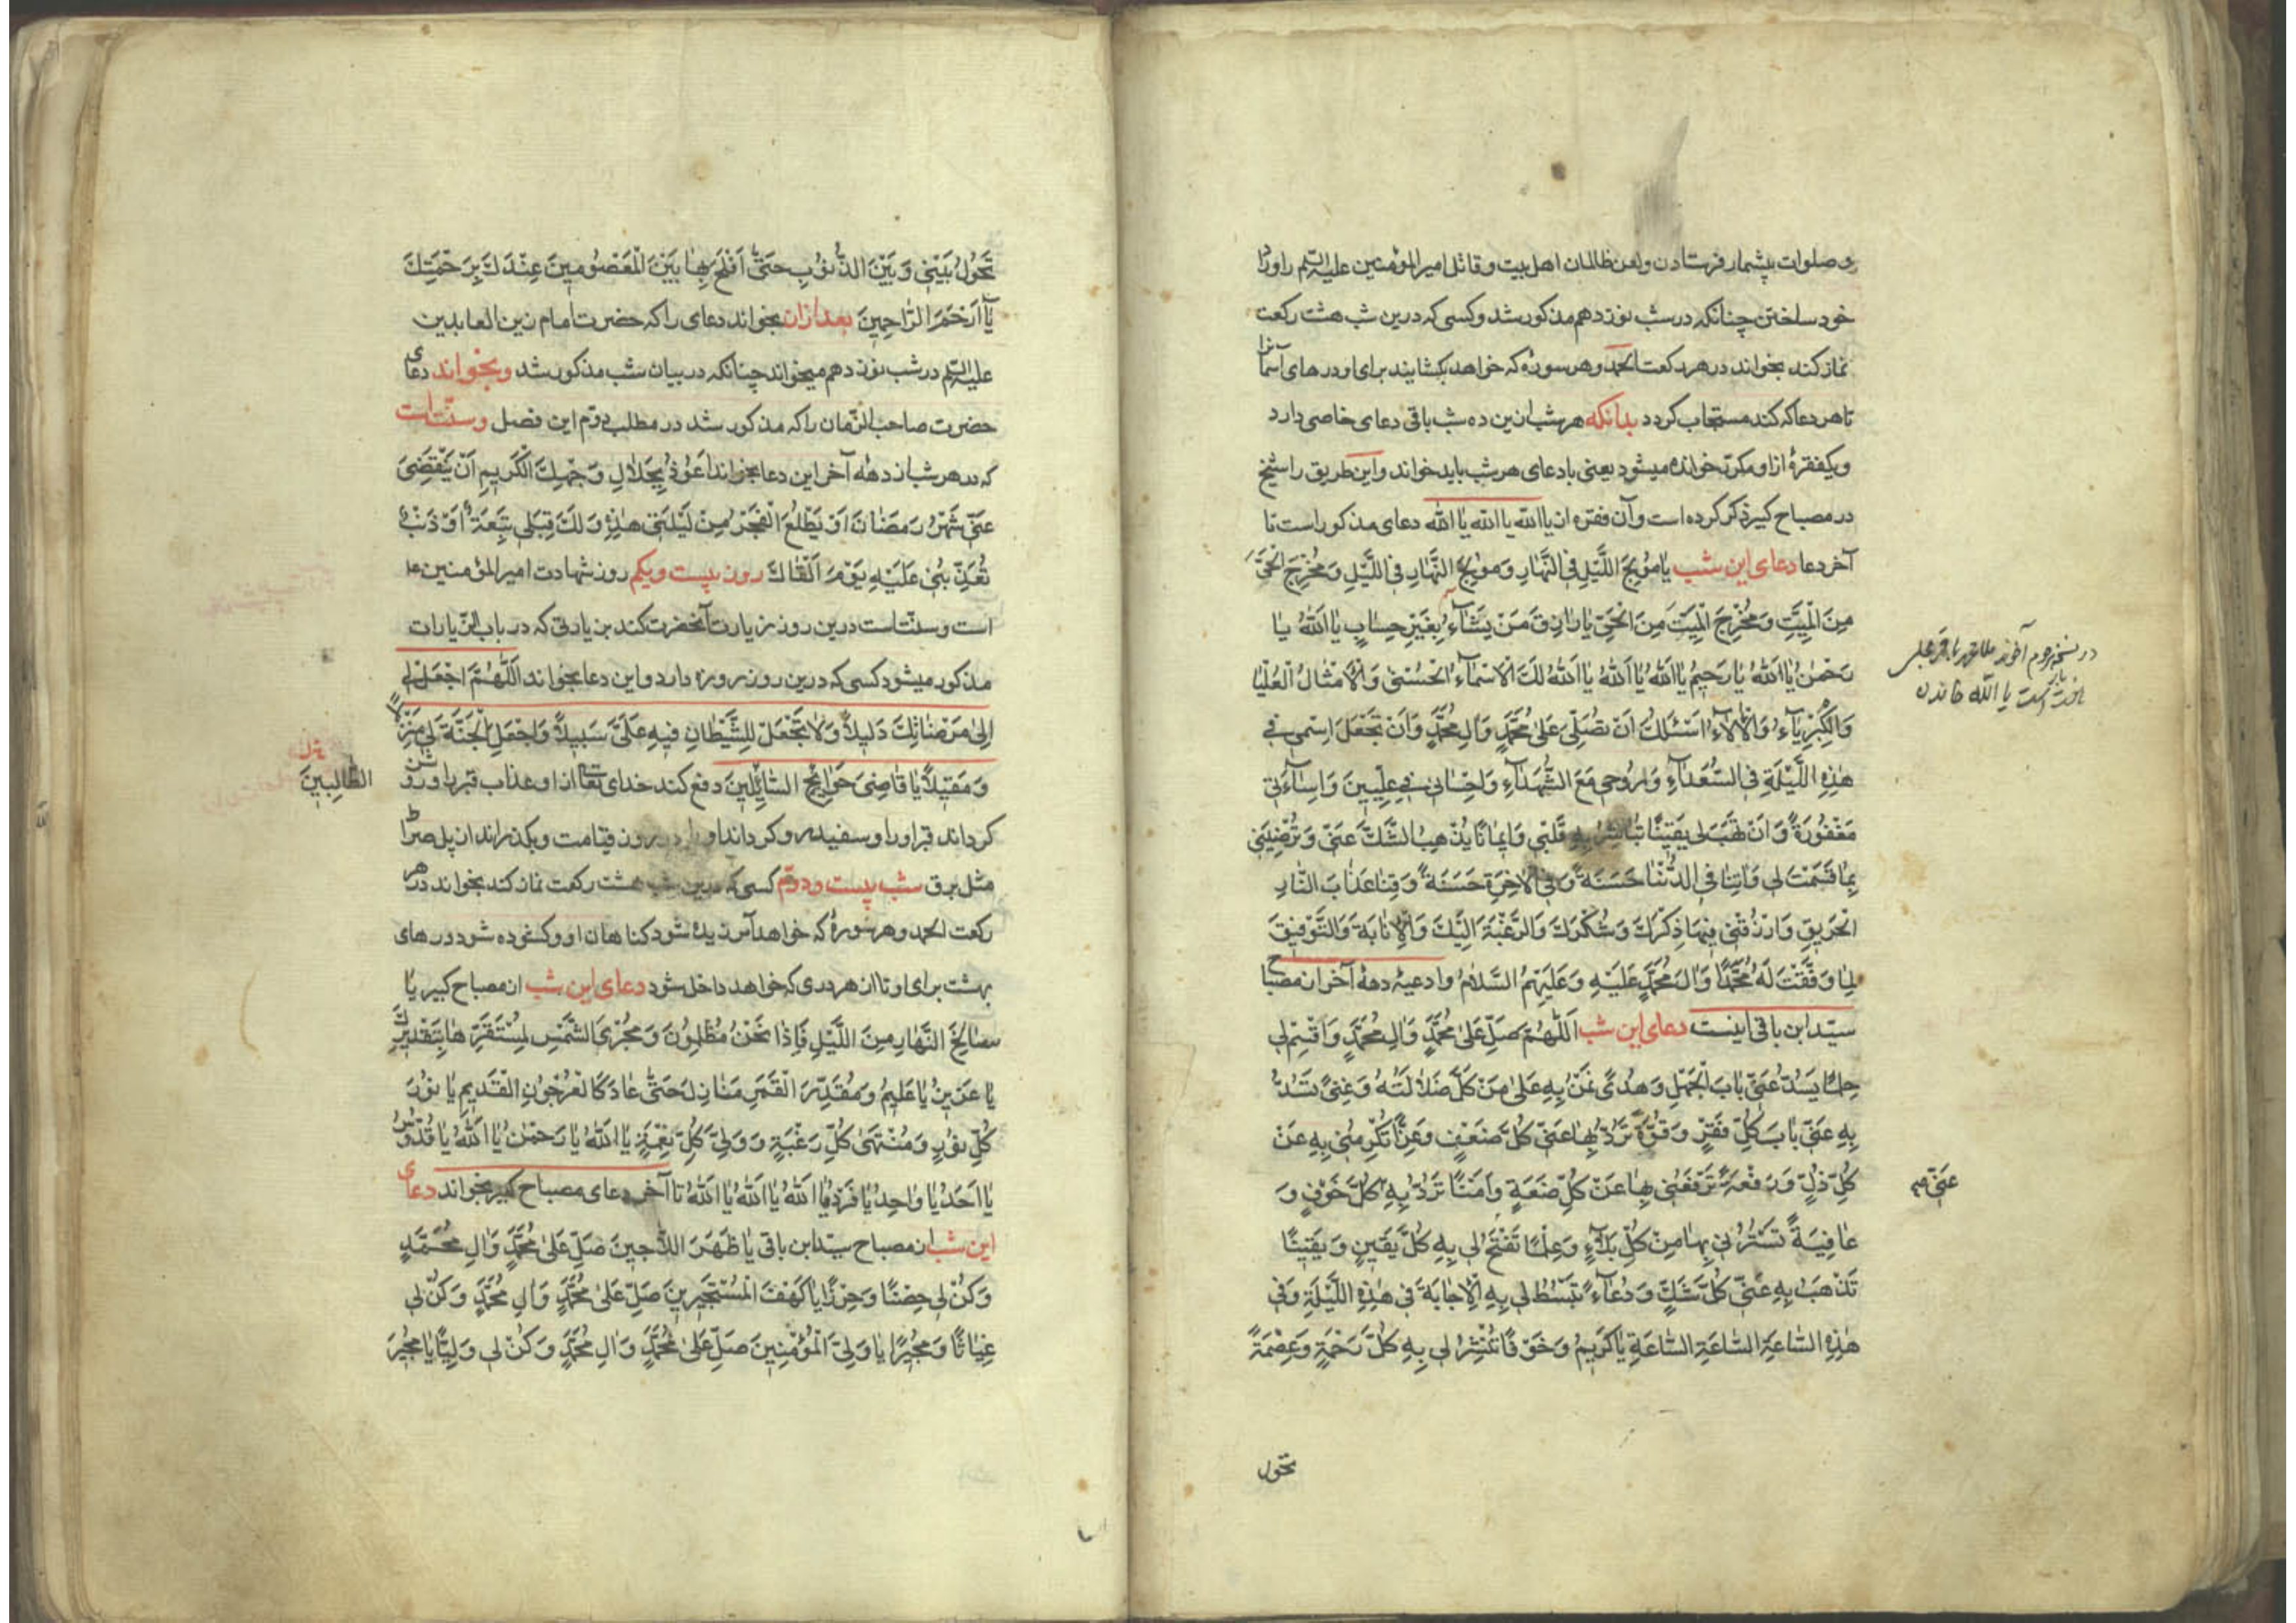 و صلوات بیشمار فرستادن و لعن ظالمان اهل بیت و قاتل امیر المؤمنین علیه السّلم را ورد
خود ساختن چنانکه در شب نوزدهم مذکور شد و کسی که درین شب هشت رکعت
نماز کند بخواند در هر رکعت الحمد و هر سوره که خواهد بکشایند برای او درهای آسمانرا
تا هر دعا که کند مستجاب کردد بدانکه هر شب ازین ده شب باقی دعای خاصی دارد
و یکفقرهٔ از او مکرّر خوانده میشود یعنی با دعای هر شب باید خواند و این طریق را شیخ
در مصباح کبیر ذکر کرده است و آن فقره از یا اللّه یا اللّه یا اللّه دعای مذکور است تا
آخر دعا دعای این شب یَا مُوْلِجَ اللَّیْلِ فِی النَّهَارِ وَمُوْلِجَ النَّهَارِ فِی اللَّیْلِ وَمُخْرِجَ الْحَیِّ
مِنَ الْمَیِّتِ وَمُخْرِجَ الْمَیِّتِ مِنَ الْحَیِّ یَا رَازِقَ مَنْ یَشَآءُ بِغَیْرِ حِسَابٍ یَا اَللّٰهُ یَا
رَحْمٰنُ یَا اَللّٰهُ یَا رَحِیْمُ یَا اَللّٰهُ یَا اَللّٰهُ یَا اَللّٰهُ لَكَ الْاَسْمَآءُ الْحُسْنٰی وَالْاَمْثَالُ الْعُلْیَا
وَالْکِبْرِیَآءُ وَالْاٰلَاءُ اَسْئَلُكَ اَنْ تُصَلِّیَ عَلٰی مُحَمَّدٍ وَاٰلِ مُحَمَّدٍ وَاَنْ تَجْعَلَ اسْمِی فِی
هٰذِهِ اللَّیْلَةِ فِی السُّعَدَآءِ وَرُوْحِی مَعَ الشُّهَدَآءِ وَاِحْسَانِی فِی عِلِّیِّیْنَ وَاِسَآءَتِی
مَغْفُوْرَةً وَاَنْ تَهَبَ لِی یَقِیْنًا تُبَاشِرُ بِهِ قَلْبِی وَاِیْمَانًا یُذْهِبُ الشَّكَّ عَنِّی وَتُرْضِیَنِی
بِمَا قَسَمْتَ لِی وَاٰتِنَا فِی الدُّنْیَا حَسَنَةً وَفِی الْاٰخِرَةِ حَسَنَةً وَقِنَا عَذَابَ النَّارِ
الْحَرِیْقِ وَارْزُقْنِی فِیْهَا ذِکْرَكَ وَشُکْرَكَ وَالرَّغْبَةَ اِلَیْكَ وَالْاِنَابَةَ وَالتَّوْفِیْقَ
لِمَا وَفَّقْتَ لَهُ مُحَمَّدًا وَاٰلَ مُحَمَّدٍ عَلَیْهِ وَعَلَیْهِمُ السَّلَامُ و ادعیهٔ دههٔ آخر از مصباح
سیّد ابن باقی اینست دعای این شب اَللّٰهُمَّ صَلِّ عَلٰی مُحَمَّدٍ وَاٰلِ مُحَمَّدٍ وَاقْسِمْ لِی
حِلْمًا یَسُدُّ عَنِّی بَابَ الْجَهْلِ وَهُدًی تَمُنُّ بِهِ عَلٰی مِنْ کُلِّ ضَلَالَةٍ وَغِنًی تَسُدُّ
بِهِ عَنِّی بَابَ کُلِّ فَقْرٍ وَقُوَّةً تَرُدُّ بِهَا عَنِّی کُلَّ ضَعْفٍ وَعِزًّا تُکْرِمُنِی بِهِ عَنْ
کُلِّ ذُلٍّ وَرِفْعَةً تَرْفَعُنِی بِهَا عَنْ کُلِّ ضَعَةٍ وَاَمْنًا تَرُدُّ بِهِ کُلَّ خَوْفٍ وَ
عَافِیَةً تَسْتُرُنِی بِهَا مِنْ کُلِّ بَلَآءٍ وَعِلْمًا تَفْتَحُ لِی بِهِ کُلَّ یَقِیْنٍ وَیَقِیْنًا
تُذْهِبُ بِهِ عَنِّی کُلَّ شَكٍّ وَدُعَآءً تَبْسُطُ لِی بِهِ الْاِجَابَةَ فِی هٰذِهِ اللَّیْلَةِ وَفِی
هٰذِهِ السَّاعَةِ السَّاعَةِ السَّاعَةِ یَا کَرِیْمُ وَخَوْفًا تُنْشِرُ لِی بِهِ کُلَّ رَحْمَةٍ وَعِصْمَةً
در نسخه مرحوم آخوند ملا محمد باقر مجلسی
یا اللّه خواندن
عَنِّی
تحول
تَحُوْلُ بَیْنِی وَبَیْنَ الذُّنُوْبِ حَتّٰی اُفْلِحَ بِهَا بَیْنَ الْمَعْصُوْمِیْنَ عِنْدَكَ بِرَحْمَتِكَ
یَا اَرْحَمَ الرَّاحِمِیْنَ بعد ازان بخواند دعای را که حضرت امام زین العابدین
علیه السّلم در شب نوزدهم میخواند چنانکه در بیان شب مذکور شد و بخواند دعای
حضرت صاحب الزّمان را که مذکور شد در مطلب دوّم این فصل و سنّت است
که در هر شب از دههٔ آخر این دعا بخواند اَعُوْذُ بِجَلَالِ وَجْهِكَ الْکَرِیْمِ اَنْ یَنْقَضِیَ
عَنِّی شَهْرُ رَمَضَانَ اَوْ یَطْلُعَ الْفَجْرُ مِنْ لَیْلَتِی هٰذِهِ وَلَكَ قِبَلِی تَبِعَةٌ اَوْ ذَنْبٌ
تُعَذِّبُنِی عَلَیْهِ یَوْمَ اَلْقَاكَ روز بیست و یکم روز شهادت امیر المؤمنین ع
است و سنّت است درین روز زیارت آنحضرت کند بزیارتی که در باب الزّیارات
مذکور میشود کسی که درین روز روزه دارد و این دعا بخواند اَللّٰهُمَّ اجْعَلْ لِی
اِلٰی مَرْضَاتِكَ دَلِیْلًا وَلَا تَجْعَلْ لِلشَّیْطَانِ فِیْهِ عَلَیَّ سَبِیْلًا وَاجْعَلِ الْجَنَّةَ لِی مَنْزِلًا
وَمَقِیْلًا یَا قَاضِیَ حَوَآئِجِ السَّآئِلِیْنَ دفع کند خدای تعا از او عذاب قبر را و روشن
کرداند قبر او را و سفیدرو کرداند او را در روز قیامت و بکذراند از پل صراط
مثل برق شب بیست و دوّم کسی که درین شب هشت رکعت نماز کند بخواند در هر
رکعت الحمد و هر سورهٔ که خواهد آمرزیده شود کناهان او و کشوده شود درهای
بهشت برای او تا از هر دری که خواهد داخل شود دعای این شب از مصباح کبیر یَا
سَالِخَ النَّهَارِ مِنَ اللَّیْلِ فَاِذَا نَحْنُ مُظْلِمُوْنَ وَمُجْرِیَ الشَّمْسِ لِمُسْتَقَرِّهَا بِتَقْدِیْرِكَ
یَا عَزِیْزُ یَا عَلِیْمُ وَمُقَدِّرَ الْقَمَرِ مَنَازِلَ حَتّٰی عَادَ کَالْعُرْجُوْنِ الْقَدِیْمِ یَا نُوْرَ
کُلِّ نُوْرٍ وَمُنْتَهٰی کُلِّ رَغْبَةٍ وَوَلِیَّ کُلِّ نِعْمَةٍ یَا اَللّٰهُ یَا رَحْمٰنُ یَا اَللّٰهُ یَا قُدُّوْسُ
یَا اَحَدُ یَا وَاحِدُ یَا فَرْدُ یَا اَللّٰهُ یَا اَللّٰهُ یَا اَللّٰهُ تا آخر دعای مصباح کبیر بخواند دعای
این شب از مصباح سیّد ابن باقی یَا ظَهْرَ اللَّاجِیْنَ صَلِّ عَلٰی مُحَمَّدٍ وَاٰلِ مُحَمَّدٍ
وَکُنْ لِی حِصْنًا وَحِرْزًا یَا کَهْفَ الْمُسْتَجِیْرِیْنَ صَلِّ عَلٰی مُحَمَّدٍ وَاٰلِ مُحَمَّدٍ وَکُنْ لِی
غِیَاثًا وَمُجِیْرًا یَا وَلِیَّ الْمُؤْمِنِیْنَ صَلِّ عَلٰی مُحَمَّدٍ وَاٰلِ مُحَمَّدٍ وَکُنْ لِی وَلِیًّا یَا مُجِیْرَ
الطَّالِبِیْنَ